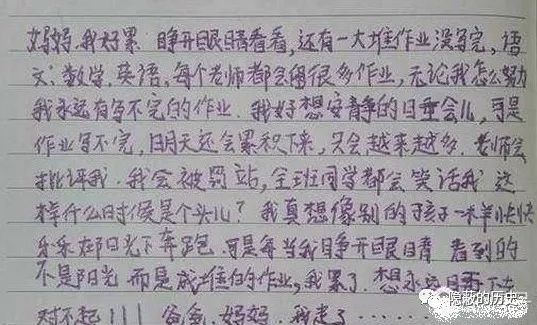 妈妈,我好累 睁开眼睛看看,还有一大堆作业没写完,语
文:数学,英语,每个老师都会留很多作业,无论我怎么努力
我永远有写不完的作业.我好想安静的睡会儿,可是
作业写不完,明天还会累积下来,只会越来越多.老师会
批评我.我会被罚站,全班同学都会笑话我 这
样什么时候是个头儿?我真想像别的孩子一样快快
乐乐在阳光下奔跑.可是每当我睁开眼睛 看到的
不是阳光 而是成堆的作业,我累了.想永远睡下去
对不起!!!爸爸,妈妈.我走了……
隐蔽的历史